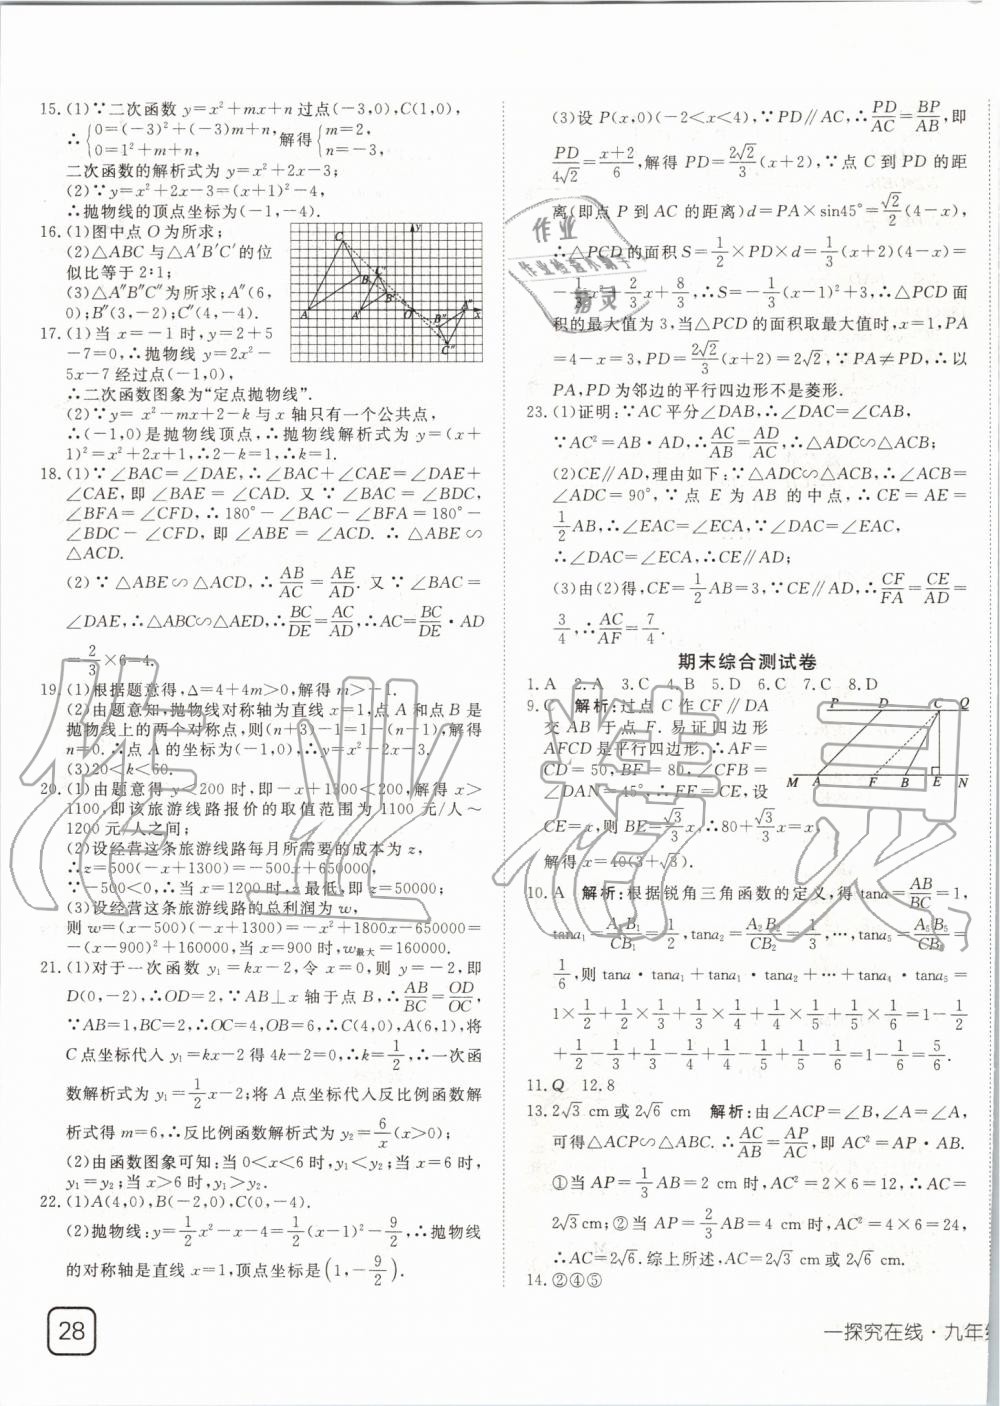 15. (1)∵二次函数 y=x²+mx+n 过点(-3,0),C(1,0),
∴{0=(-3)²+(-3)m+n, 0=1²+m+n, 解得{m=2, n=-3,
二次函数的解析式为 y=x²+2x-3;
(2)∵y=x²+2x-3=(x+1)²-4,
∴抛物线的顶点坐标为(-1,-4).
16. (1)图中点 O 为所求;
(2)△ABC 与△A′B′C′的位
似比等于 2∶1;
(3)△A″B″C″为所求;A″(6,
0);B″(3,-2);C″(4,-4).
17. (1)当 x=-1 时,y=2+5
-7=0,∴抛物线 y=2x²-
5x-7 经过点(-1,0),
∴二次函数图象为“定点抛物线”.
(2)∵y= x²-mx+2-k 与 x 轴只有一个公共点,
∴(-1,0)是抛物线顶点,∴抛物线解析式为 y=(x+
1)²=x²+2x+1,∴2-k=1,∴k=1.
18. (1)∵∠BAC=∠DAE,∴∠BAC+∠CAE=∠DAE+
∠CAE,即∠BAE=∠CAD. 又∵∠BAC=∠BDC,
∠BFA=∠CFD,∴180°-∠BAC-∠BFA=180°-
∠BDC-∠CFD,即∠ABE=∠ACD. ∴△ABE∽
△ACD.
(2)∵△ABE∽△ACD,∴AB/AC=AE/AD. 又∵∠BAC=
∠DAE,∴△ABC∽△AED,∴BC/DE=AC/AD,∴AC=BC/DE·AD
=2/3×6=4.
19. (1)根据题意得,Δ=4+4m>0,解得 m>-1.
(2)由题意知,抛物线对称轴为直线 x=1,点 A 和点 B 是
抛物线上的两个对称点,则(n+3)-1=1-(n-1),解得
n=0.∴点 A 的坐标为(-1,0),∴y=x²-2x-3.
(3)20<k<60.
20. (1)由题意得 y<200 时,即-x+1300<200,解得 x>
1100,即该旅游线路报价的取值范围为 1100 元/人~
1200 元/人之间;
(2)设经营这条旅游线路每月所需要的成本为 z,
∴z=500(-x+1300)=-500x+650000,
∵-500<0,∴当 x=1200 时,z最低,即 z=50000;
(3)设经营这条旅游线路的总利润为 w,
则 w=(x-500)(-x+1300)=-x²+1800x-650000=
-(x-900)²+160000,当 x=900 时,w最大=160000.
21. (1)对于一次函数 y₁=kx-2,令 x=0,则 y=-2,即
D(0,-2),∴OD=2,∵AB⊥x 轴于点 B,∴AB/BC=OD/OC,
∵AB=1,BC=2,∴OC=4,OB=6,∴C(4,0),A(6,1),将
C 点坐标代入 y₁=kx-2 得 4k-2=0,∴k=1/2,∴一次函
数解析式为 y₁=1/2x-2;将 A 点坐标代入反比例函数解
析式得 m=6,∴反比例函数解析式为 y₂=6/x(x>0);
(2)由函数图象可知:当 0<x<6 时,y₁<y₂;当 x=6 时,
y₁=y₂;当 x>6 时,y₁>y₂.
22. (1)A(4,0),B(-2,0),C(0,-4).
(2)抛物线:y=1/2x²-x-4=1/2(x-1)²-9/2,∴抛物线
的对称轴是直线 x=1,顶点坐标是(1,-9/2).
28
(3)设 P(x,0)(-2<x<4),∵PD∥AC,∴PD/AC=BP/AB,即
PD/4√2=x+2/6,解得 PD=2√2/3(x+2),∵点 C 到 PD 的距
离(即点 P 到 AC 的距离)d=PA×sin45°=√2/2(4-x),
∴△PCD的面积 S=1/2×PD×d=1/3(x+2)(4-x)=
-1/3x²+2/3x+8/3,∴S=-1/3(x-1)²+3,∴△PCD面
积的最大值为 3,当△PCD的面积取最大值时,x=1,PA
=4-x=3,PD=2√2/3(x+2)=2√2,∵PA≠PD,∴以
PA,PD为邻边的平行四边形不是菱形.
23. (1)证明:∵AC平分∠DAB,∴∠DAC=∠CAB,
∵AC²=AB·AD,∴AC/AB=AD/AC,∴△ADC∽△ACB;
(2)CE∥AD,理由如下:∵△ADC∽△ACB,∴∠ACB=
∠ADC=90°,∵点 E 为 AB 的中点,∴CE=AE=
1/2AB,∴∠EAC=∠ECA,∵∠DAC=∠EAC,
∴∠DAC=∠ECA,∴CE∥AD;
(3)由(2)得,CE=1/2AB=3,∵CE∥AD,∴CF/FA=CE/AD=
3/4,∴AC/AF=7/4.
期末综合测试卷
1. A 2. A 3. C 4. B 5. D 6. C 7. C 8. D
9. C 解析:过点 C 作 CF∥DA
交 AB 于点 F. 易证四边形
AFCD是平行四边形.∴AF=
CD=50,BF=80,∠CFB=
∠DAN=45°,∴FE=CE,设
CE=x,则 BE=√3/3x,∴80+√3/3x=x,
解得 x=40(3+√3).
10. A 解析:根据锐角三角函数的定义,得 tanα=AB/BC=1,
tanα₁=A₁B₁/CB₁=1/2,tanα₂=A₂B₂/CB₂=1/3,…,tanα₅=A₅B₅/CB₅=
1/6,则 tanα·tanα₁+tanα₁·tanα₂+…+tanα₄·tanα₅=
1×1/2+1/2×1/3+1/3×1/4+1/4×1/5+1/5×1/6=1-1/2
+1/2-1/3+1/3-1/4+1/4-1/5+1/5-1/6=1-1/6=5/6.
11. Q 12. 8
13. 2√3 cm 或 2√6 cm 解析:由∠ACP=∠B,∠A=∠A,
可得△ACP∽△ABC.∴AC/AB=AP/AC,即 AC²=AP·AB.
①当 AP=1/3AB=2 cm 时,AC²=2×6=12,∴AC=
2√3cm;②当 AP=2/3AB=4 cm 时,AC²=4×6=24,
∴AC=2√6.综上所述,AC=2√3 cm 或 2√6 cm.
14. ②④⑤
一探究在线·九年级